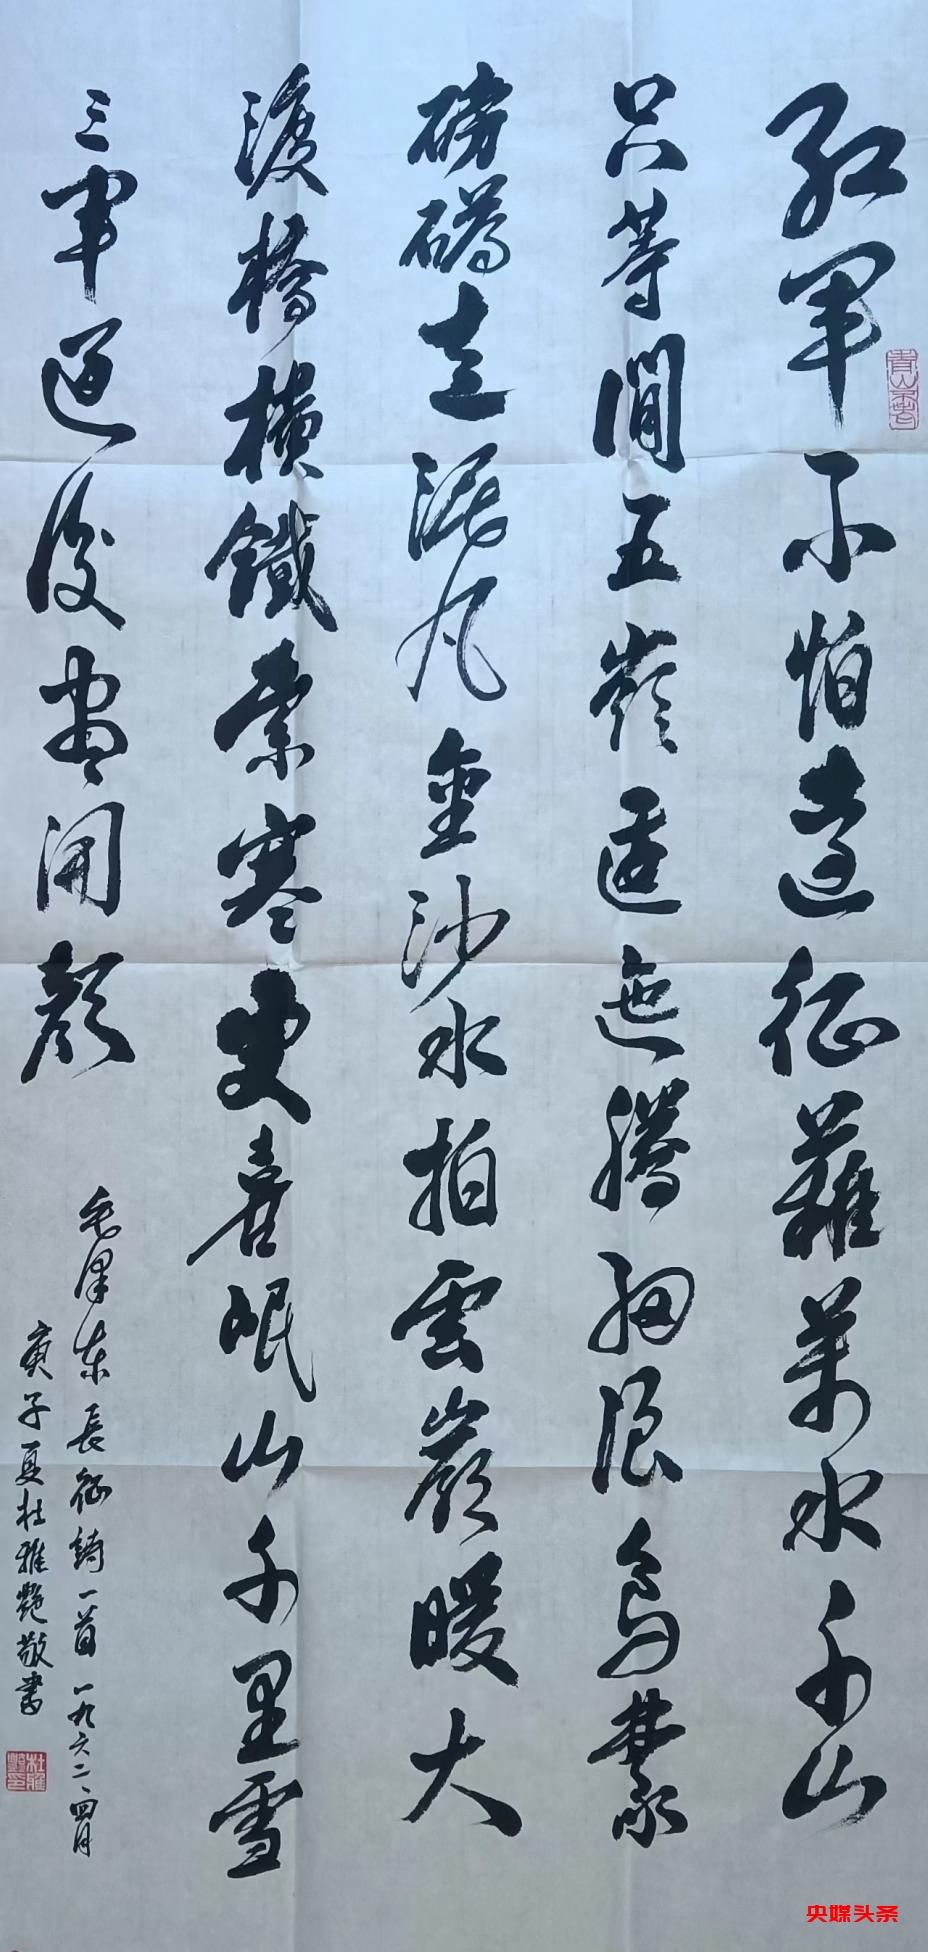 紅軍不怕遠征難萬水千山
只等閒五嶺逶迤騰細浪烏蒙
磅礴走泥丸金沙水拍雲巖暖大
渡橋橫鐵索寒更喜岷山千里雪
三軍過後盡開顏
毛澤東長征詩一首一九六二、四月
庚子夏杜雅艷敬書
杜雅艷印
央媒头条